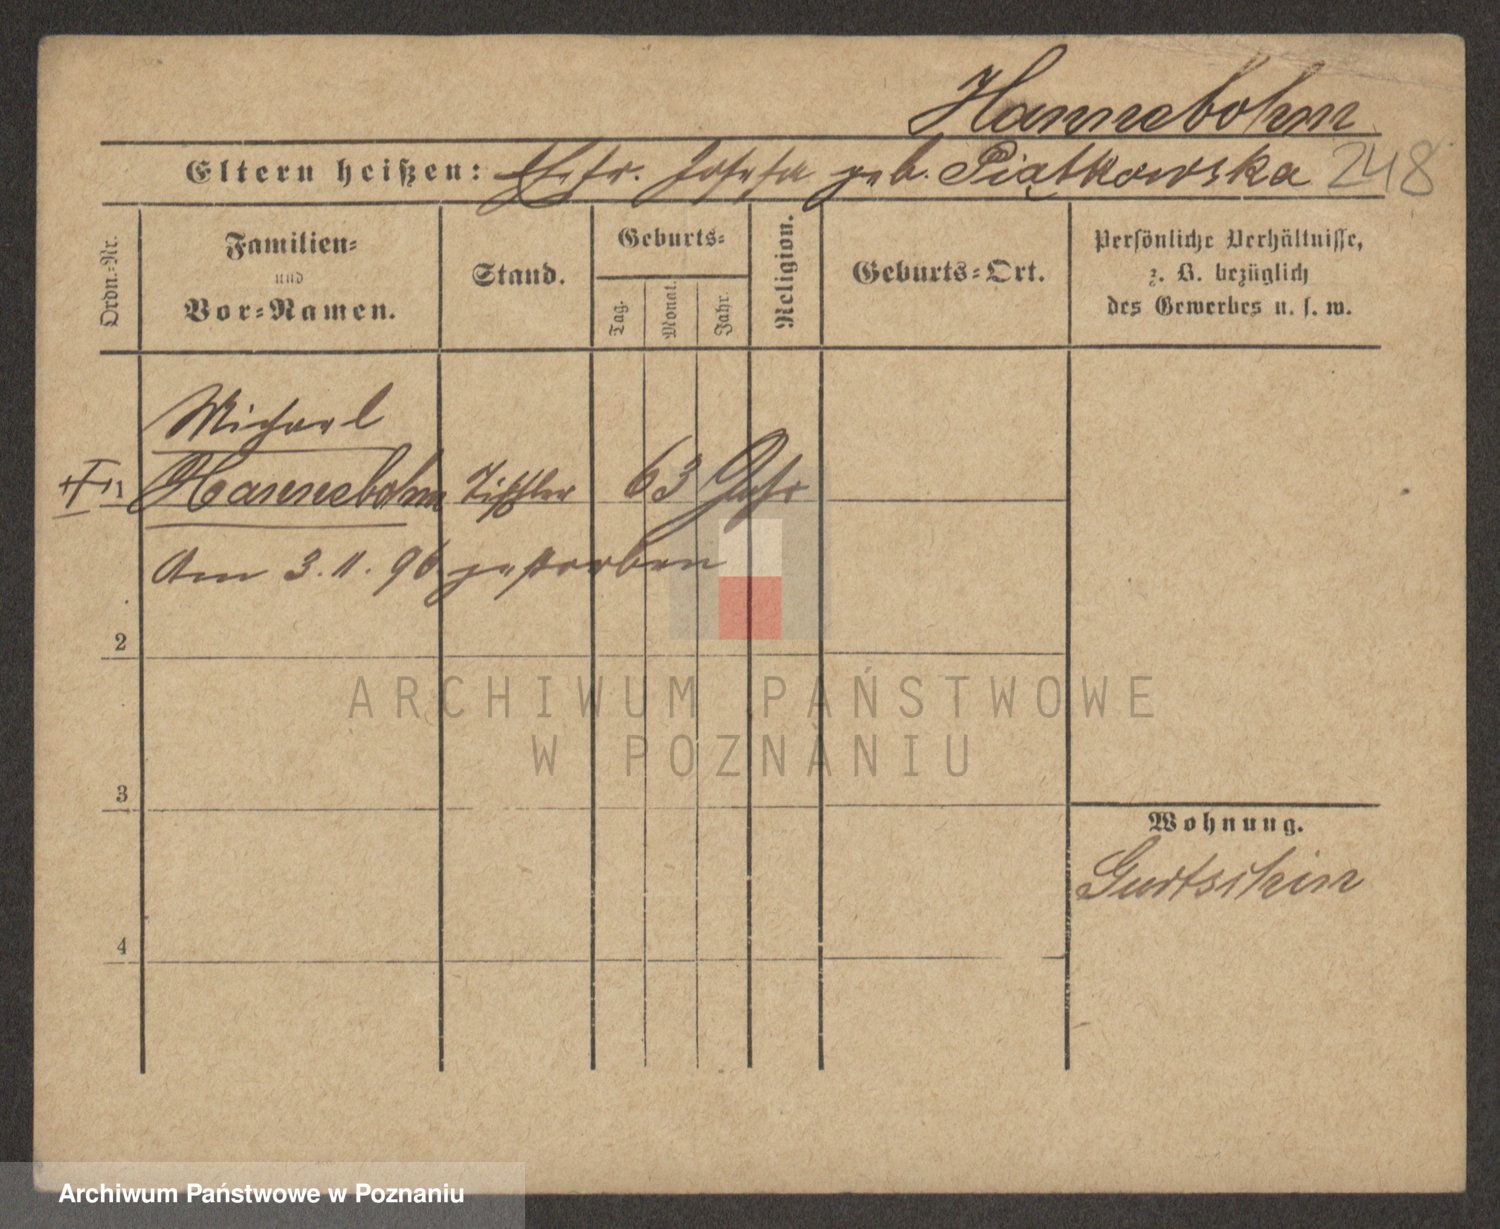 Hannebohm
Eltern heißen: Ehefr. Josefa geb. Piątkowska 248
Ordn.-Nr.
Familien-
und
Vor-Namen.
Stand.
Geburts-
Tag.
Monat.
Jahr.
Religion.
Geburts-Ort.
Persönliche Verhältnisse,
z. B. bezüglich
des Gewerbes u. s. w.
Michael
1 Hannebohm Tischler 63 Jahr
Am 3.11.96 gestorben
2
3
4
Wohnung.
Gurtschin
ARCHIWUM PAŃSTWOWE
W POZNANIU
Archiwum Państwowe w Poznaniu